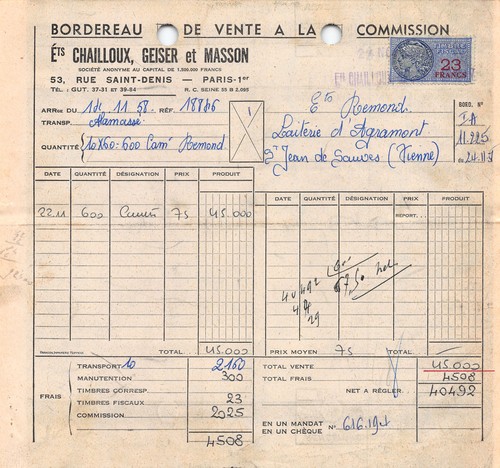 BORDEREAU DE VENTE A LA COMMISSION
Éts CHAILLOUX, GEISER et MASSON
SOCIÉTÉ ANONYME AU CAPITAL DE 1.500.000 FRANCS
53, RUE SAINT-DENIS - PARIS-1er
TÉL. : GUT. 37-31 ET 39-84 R. C. SEINE 55 B 2.095
23
FRANCS
ARR. DU 11 58 RÉF.
TRANSP.
QUANTITÉ 10x60-600 Remond
Ets Remond
Laiterie d'Agramont
St Jean de Sauves (Vienne)
BORD. N°
11.225
DATE QUANTITÉ DÉSIGNATION PRIX PRODUIT
22.11 600 75 45.000
TOTAL 45.000
DATE QUANTITÉ DÉSIGNATION PRIX PRODUIT
REPORT
40 492
PRIX MOYEN 75 TOTAL
FRAIS
TRANSPORT 10 2160
MANUTENTION 300
TIMBRES CORRESP.
TIMBRES FISCAUX 23
COMMISSION 2025
4508
TOTAL VENTE 45.000
TOTAL FRAIS 4508
NET A RÉGLER 40492
EN UN MANDAT
EN UN CHÈQUE N° 616.194